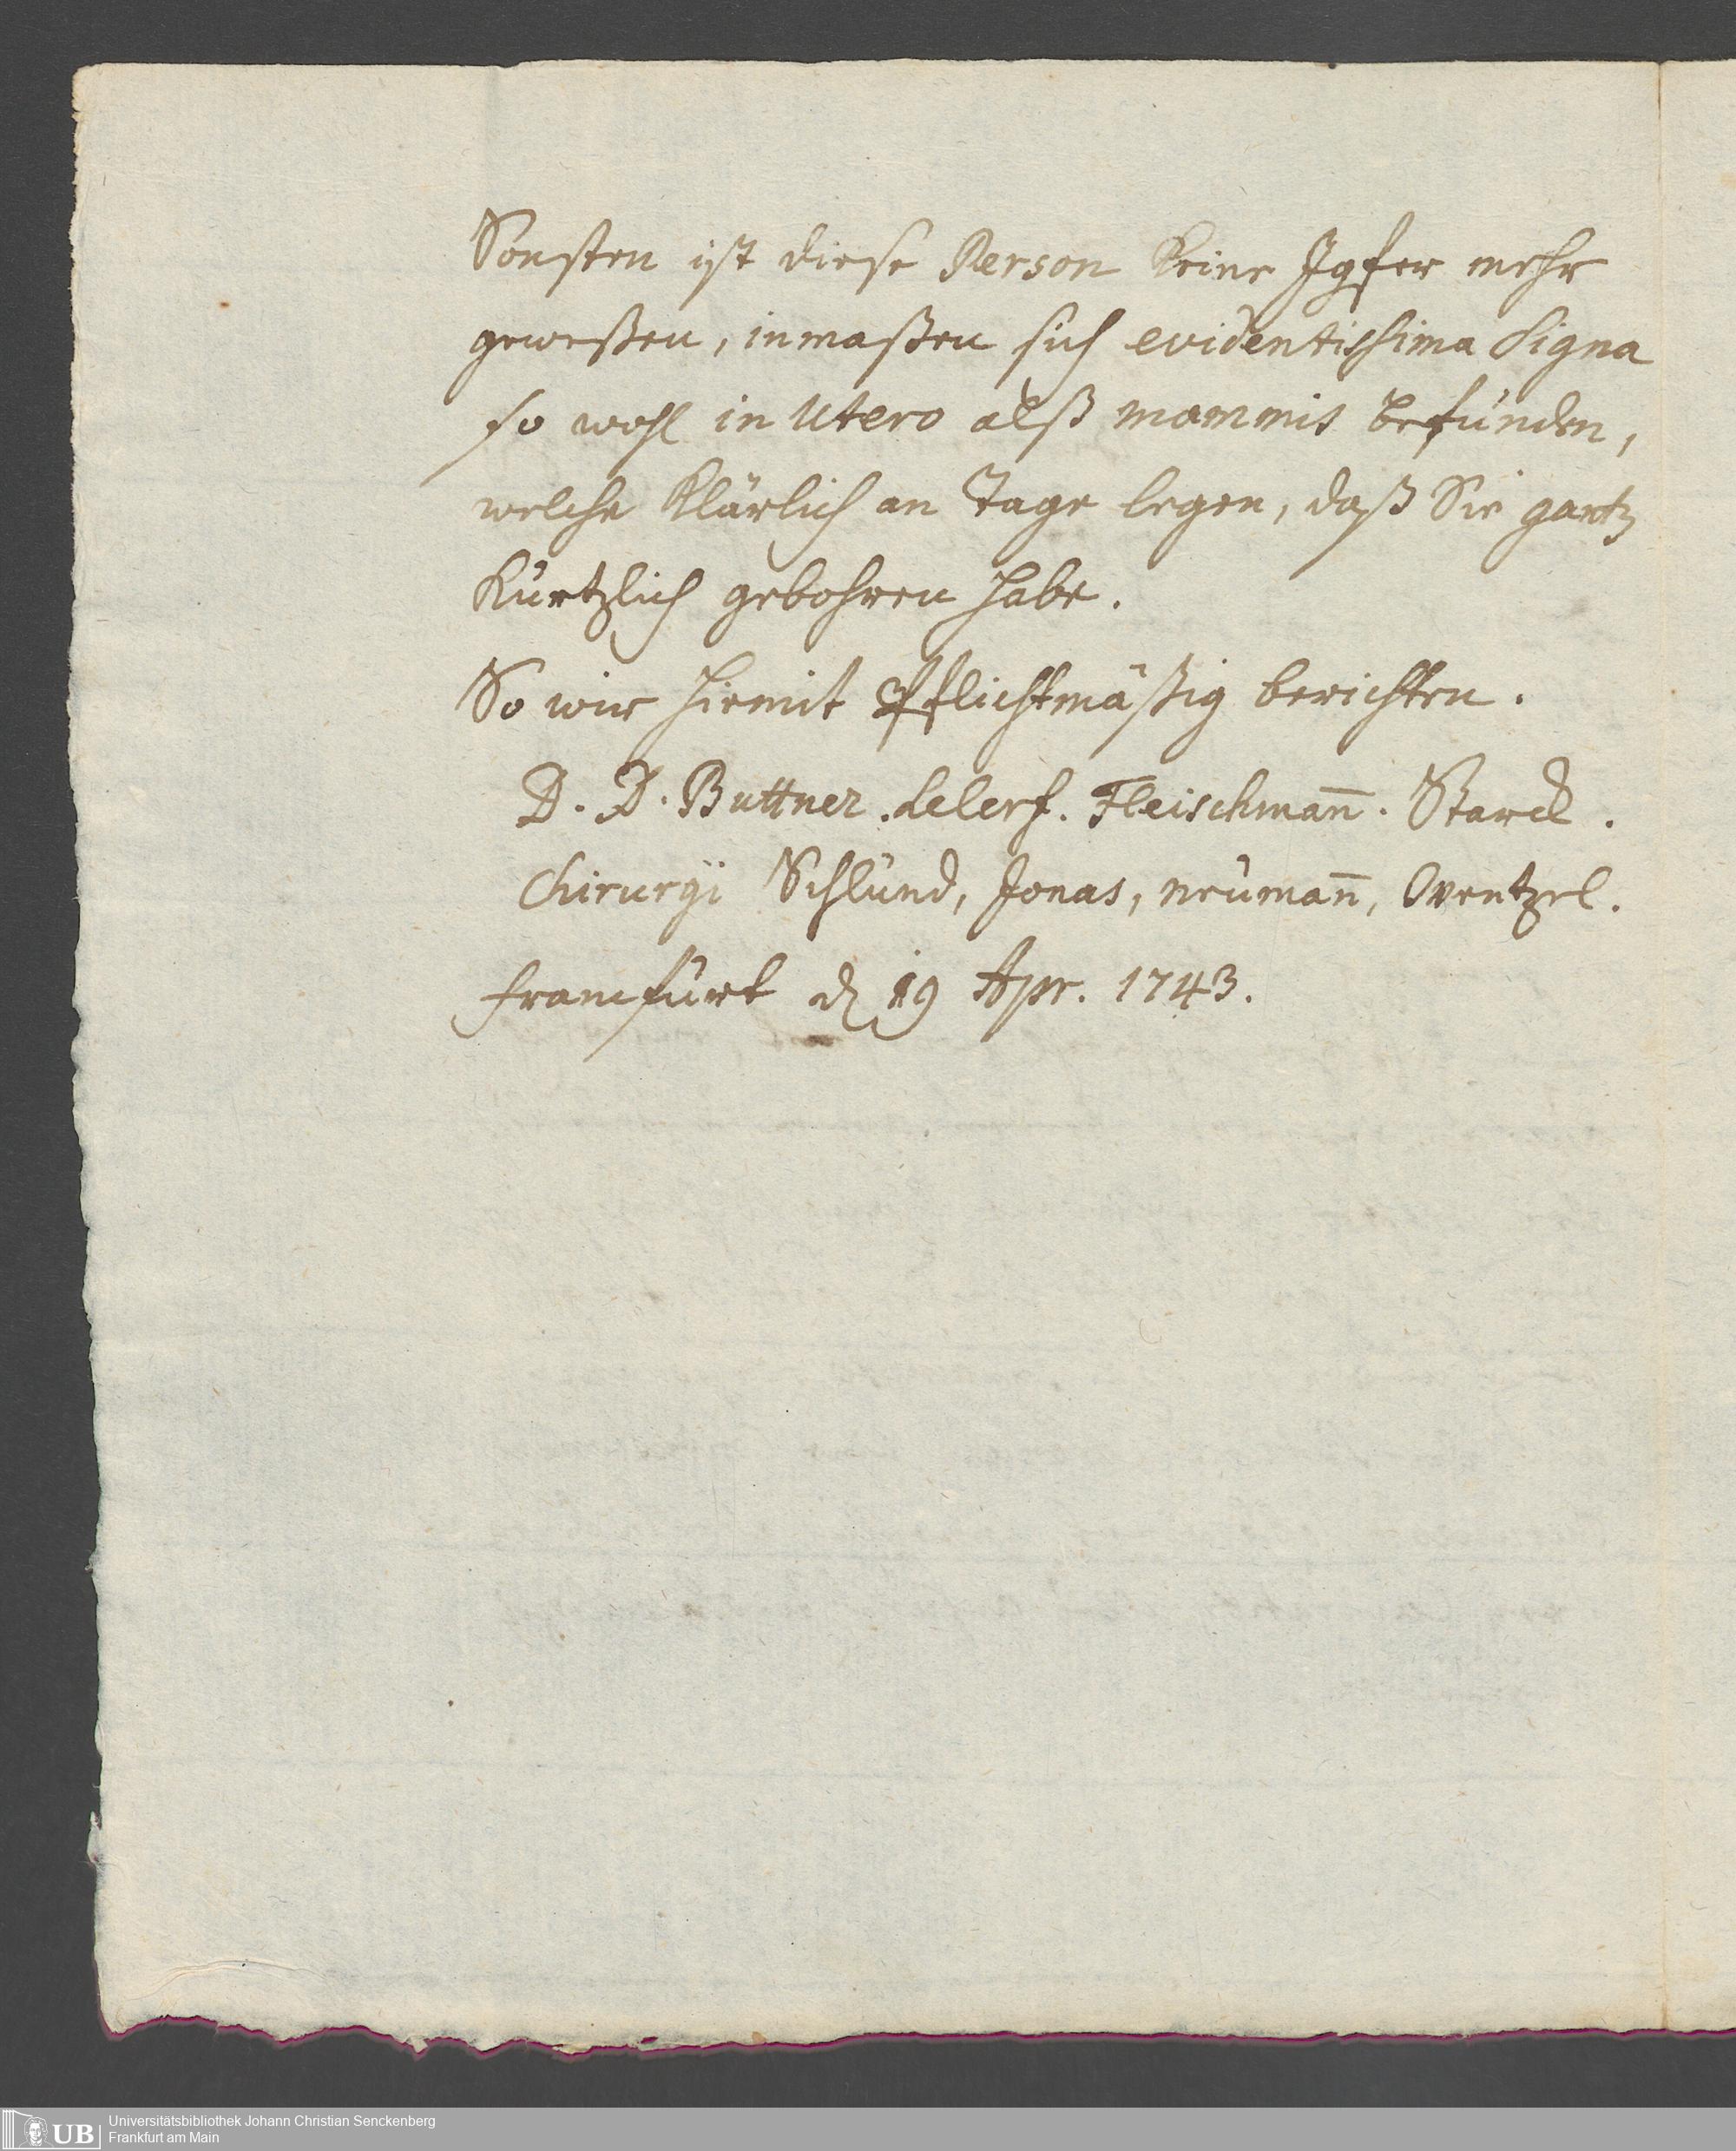 Sonsten ist diese Person keine Jgfer mehr
geweßen, inmaßen sich evidentissima Signa
so wohl in Utero alß mammis befunden,
welche klärlich an Tage legen, daß Sie gantz
kürtzlich gebohren habe.
So wir hiemit Pflichtmäßig berichten.
D. D. Buttner. Lelerf. Fleischman̄. Starck.
Chirurgi Schlund, Jonas, Neuman̄,
Francfurt d 19 Apr. 1743.
UB
Universitätsbibliothek Johann Christian Senckenberg
Frankfurt am Main